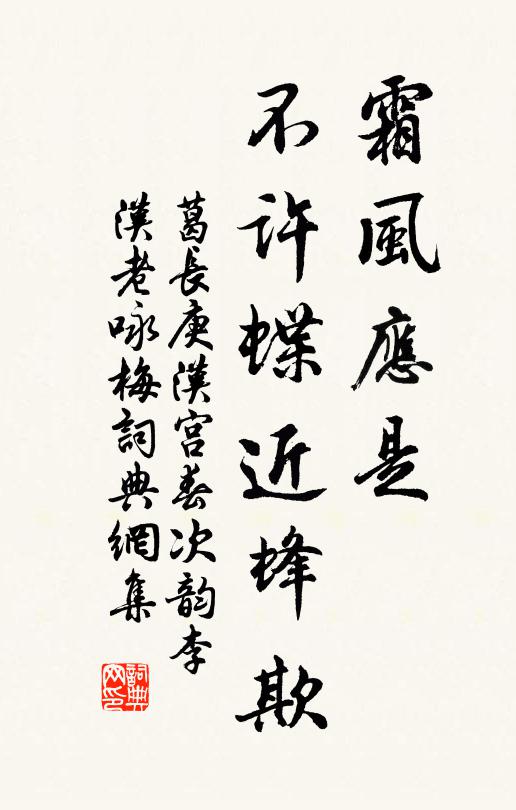 霜風應是
不許蝶近蜂欺
葛長庚漢宮春次韵李
漢老咏梅詞典網集
詞典
网印